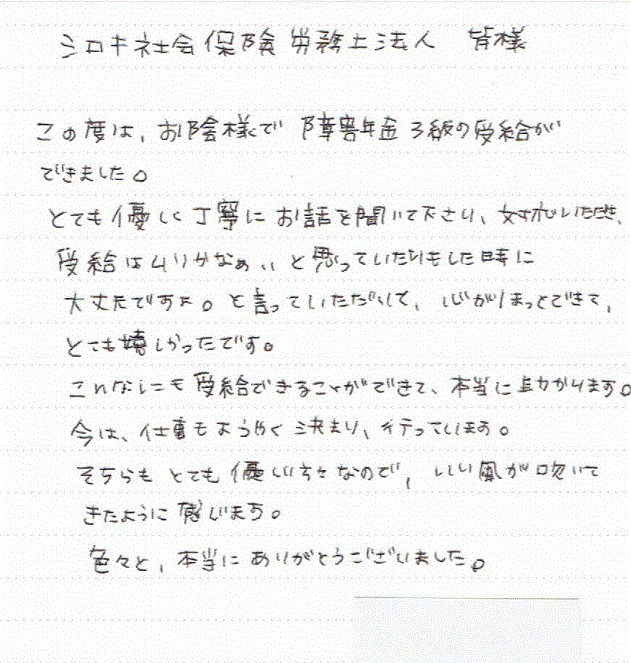 シロキ社会保険労務士法人 皆様
この度は、お陰様で障害年金3級の受給が
できました。
とても優しく丁寧にお話を聞いて下さり、対応いただき、
受給はムリかなぁ、、と思っていたりもした時に
大丈夫ですよ。と言っていただいて、心がほっとできて、
とても嬉しかったです。
こんなにも受給できることができて、本当に助かります。
今は、仕事もようやく決まり、行っています。
そちらもとても優しい方々なので、いい風が吹いて
きたように感じます。
色々と、本当にありがとうございました。